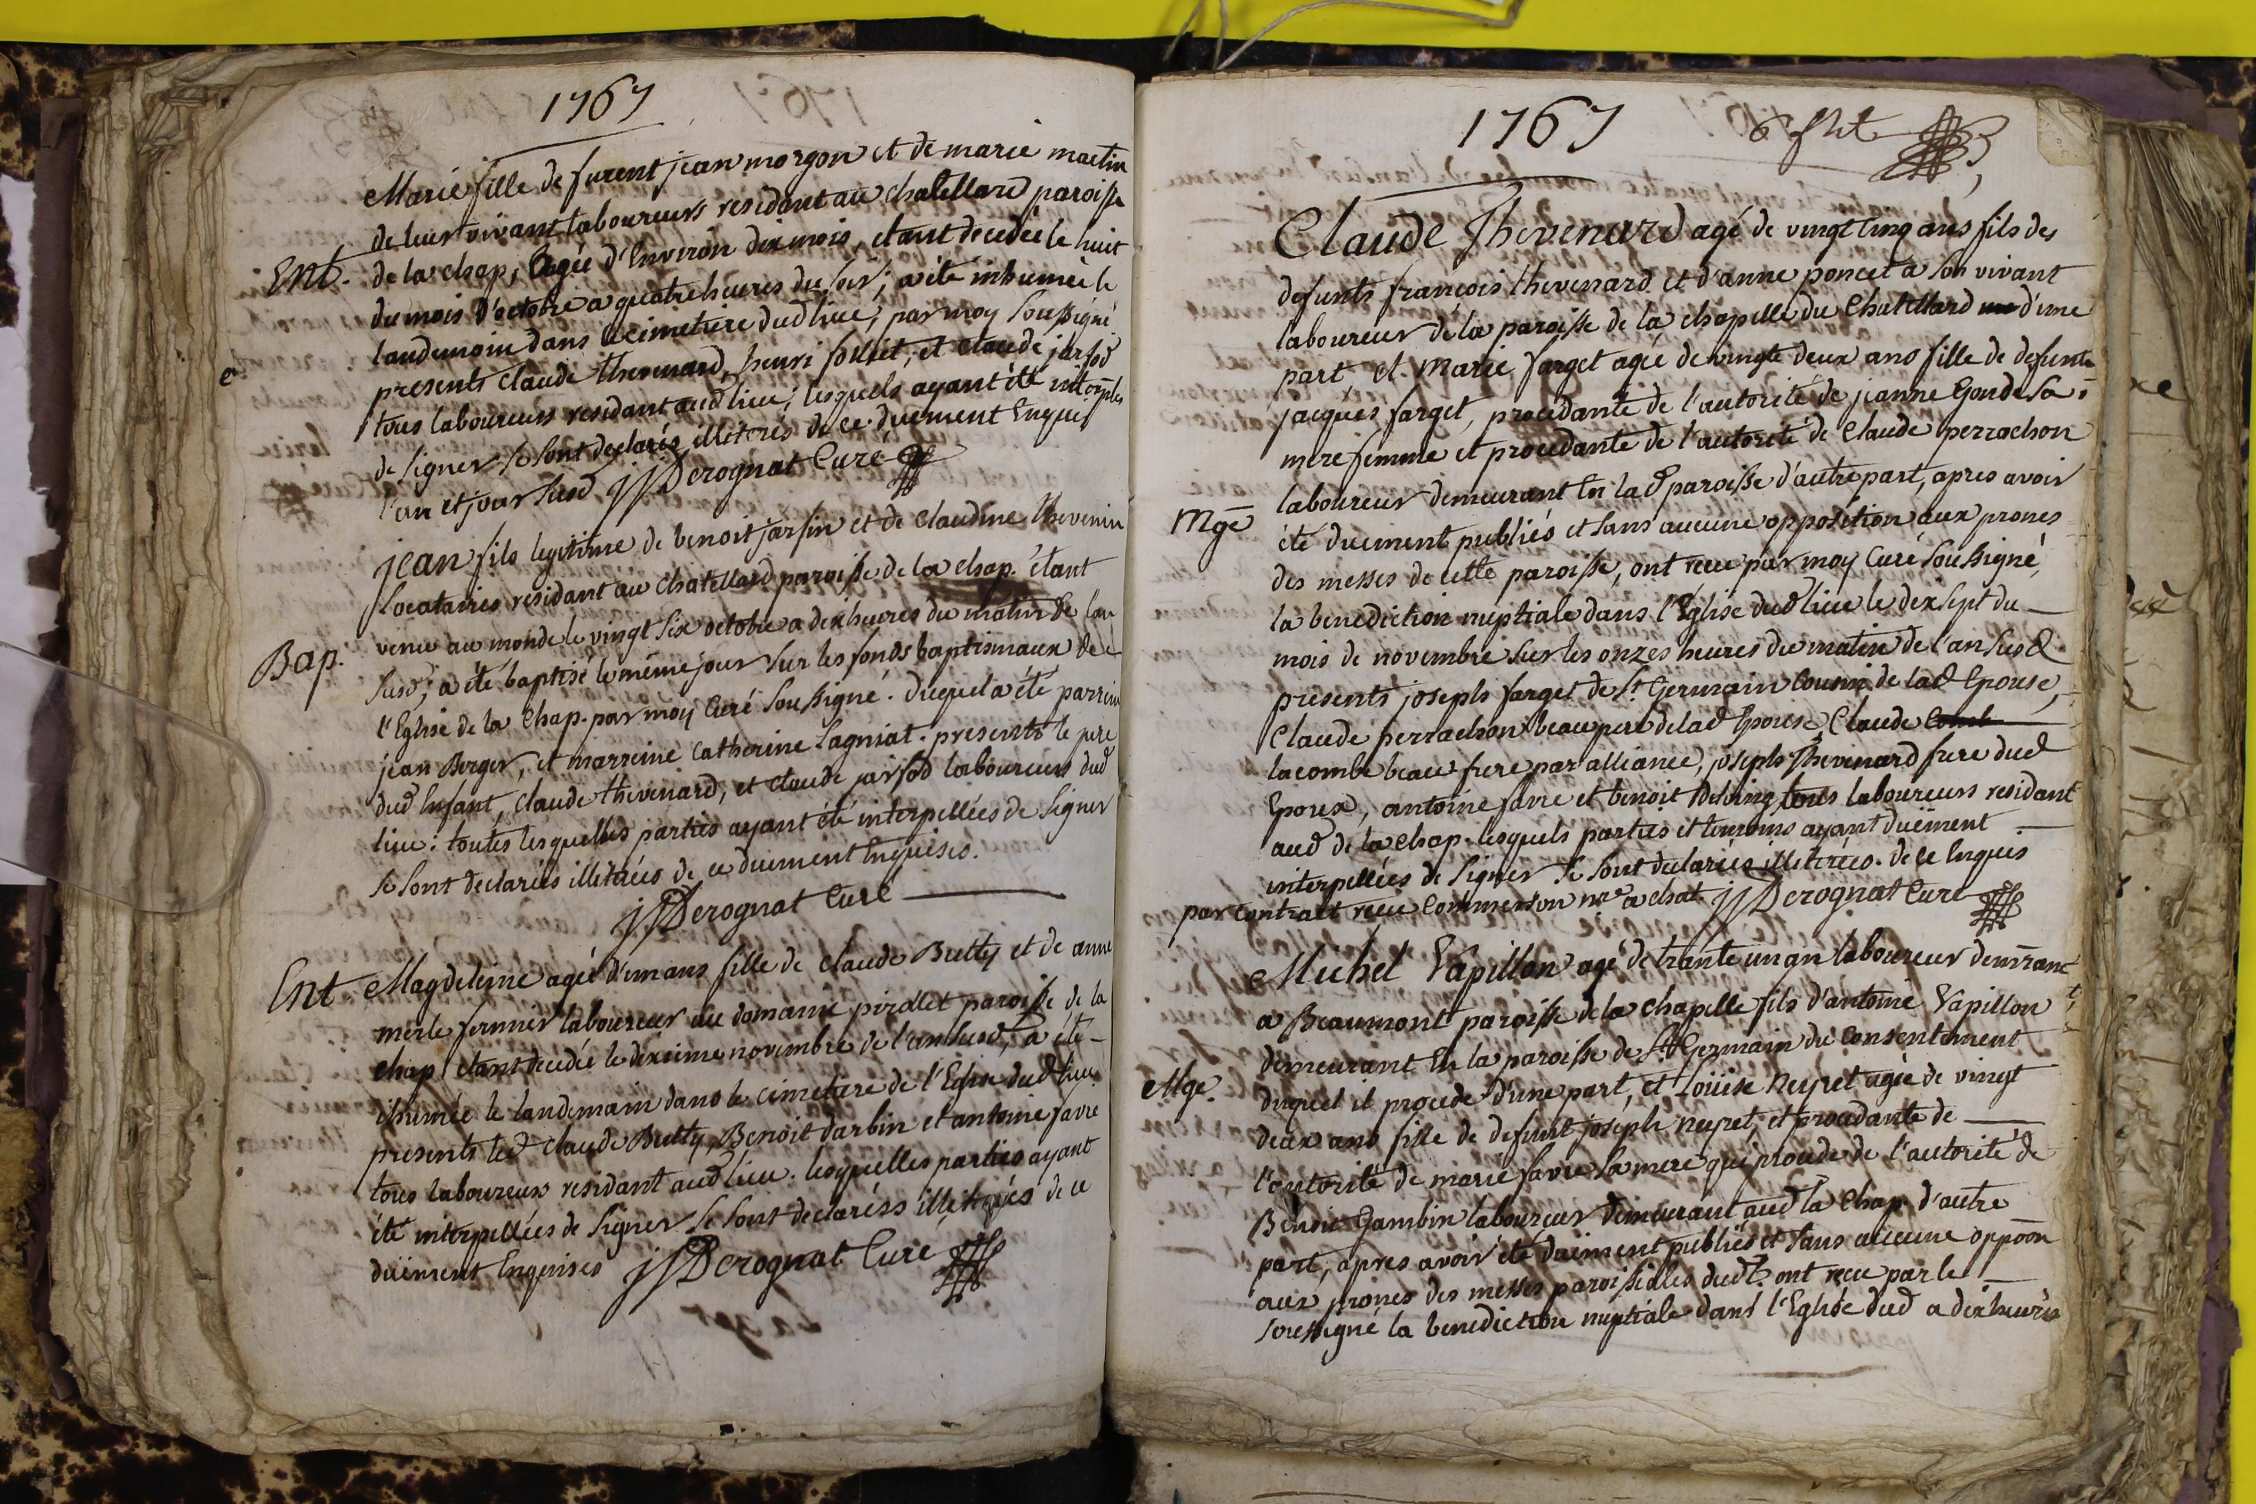 1767
Marie fille de furent jean morgon et de marie martin
de leur vivant laboureurs residant au chatellard paroisse
Ent. de la chap, agée d'environ dix mois, etant decedée le huit
du mois d'octobre a quatre heures du soir; a été inhumée le
landemain dans le cimetiere dud lieu, par moy soussigné
presents claude thevenard, henri follict, et claude jarfod
tous laboureurs residant aud lieu; lesquels ayant été
de signer se sont declarés illiterés de ce duement Enquis
l'an et jour susd JJDerognat Curé
jean fils legitime de benoit jarfin et de claudine thevenin
locataires residant au chatellard paroisse de la chap. étant
Bap. venu au monde le vingt six octobre a dix heures du matin de l'an
susd; a été baptisé le même jour sur les fonds baptismaux de
l'Eglise de la chap. par moy Curé soussigné. duquel a été parrein
jean Berger, et marreine catherine Lagniat. presents le pere
dud Enfant, claude thevenard, et claude jarfod laboureurs dud
lieu: toutes lesquelles parties ayant été interpellées de signer
se sont declarées illiterées de ce duement Enquises.
JJDerognat Curé
Ent Magdeleine agée d'un ans fille de claude Butty et de anne
merle fermier laboureur au domaine pirollet paroisse de la
chap etant decedée le dixieme novembre de l'an susd, a été
ihumée le landemain dans le cimetiere de l'Eglise dud lieu
presents led claude Butty, Benoit darbin et antoine favre
tous laboureurs residant aud lieu. lesquelles parties ayant
été interpellées de signer se sont declaréss illiterées de ce
duëment Enquises JJDerognat Curé
1767
Claude Thevenard agé de vingt cinq ans fils des
defunts francois thevenard et d'anne poncet a son vivant
laboureur de la paroisse de la chapelle du Chatellard d'une
part, et marie farget agée de vingte deux ans fille de defunte
jacques farget, procedante de l'autorité de jeanne Gonde sa
mere femme et procedante de l'autorité de claude perrachon
laboureur demeurant En lad paroisse d'autre part, apres avoir
Mge été duement publiés et sans aucune opposition aux prones
des messes de cette paroisse, ont recu par moy Curé soussigné
la benediction nuptiale dans l'Eglise dud lieu le dix sept du
mois de novembre sur les onzes heures du matin de l'an susd
presents joseph farget de St Germain Cousin de lad Epouse,
Claude perrachon beau pere de lad Epouse, Claude Comb
lacombe beau frere par alliance, joseph Thevenard frere dud
Epoux, antoine favre et benoit tous laboureurs residant
aud de la chap. lesquels parties et temoins ayant duëment
interpellées de signer se sont declarées illiterées. de ce Enquis
par contract recu Commerson nre a chat. JJDerognat Curé
Michel Vapillon agé de trante un an laboureur demrant
a Beaumont paroisse de la chapelle fils d'antoine Vapillon
demeurant En la paroisse de St Germain du consentement
Mge. duquel il procede d'une part, et Loüise neyret agée de vingt
deux ans fille de defunt joseph neyret, et procedante de
l'autorité de marie favre sa mere qui procede de l'autorité de
Benoit Gambin laboureur demeurant aud la chap. d'autre
part, apres avoir été duëment publiés et sans aucune oppōon
aux prones des messes paroissiales dud. ont recu par le
soussigné la benediction nuptiale dans l'Eglise dud a dix heures